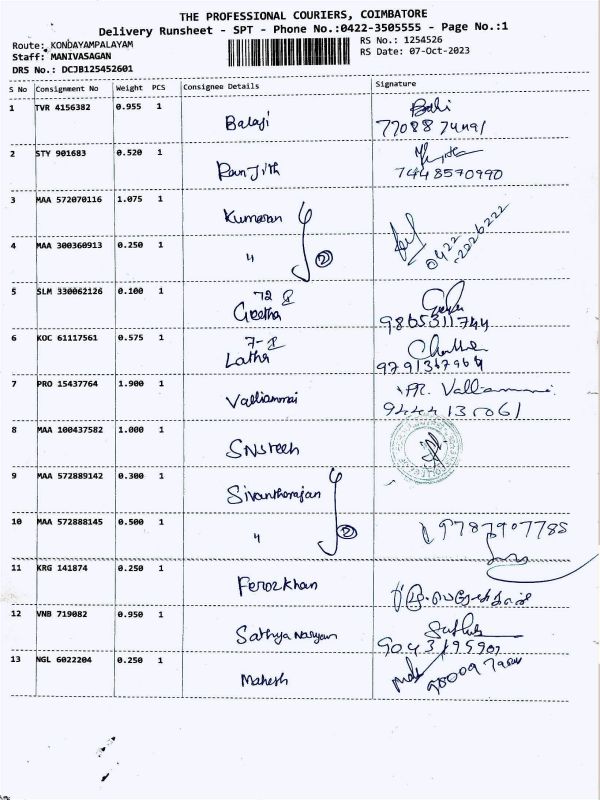 THE PROFESSIONAL COURIERS, COIMBATORE
Delivery Runsheet - SPT - Phone No.:0422-3505555 - Page No.:1
Route: KONDAYAMPALAYAM
RS No.: 1254526
Staff: MANIVASAGAN
RS Date: 07-Oct-2023
DRS No.: DCJB125452601
S No Consignment No Weight PCS Consignee Details Signature
1 TVR 4156382 0.955 1 Balaji
2 STY 901683 0.520 1 Ranjith 7448570990
3 MAA 572070116 1.075 1 Kumaran
0422
2226222
4 MAA 300360913 0.250 1 " 2
5 SLM 330062126 0.100 1 72
Geetha 9865311744
6 KOC 61117561 0.575 1
Latha 9791367964
7 PRO 15437764 1.900 1 Valliammai PR. Valliammai
8 MAA 100437582 1.000 1 SNSteeh
9 MAA 572889142 0.300 1 Sivantharajan
10 MAA 572888145 0.500 1 " 2 9787907785
11 KRG 141874 0.250 1 Ferozkhan
12 VNB 719082 0.950 1 Sathya Narayan
13 NGL 6022204 0.250 1 Mahesh